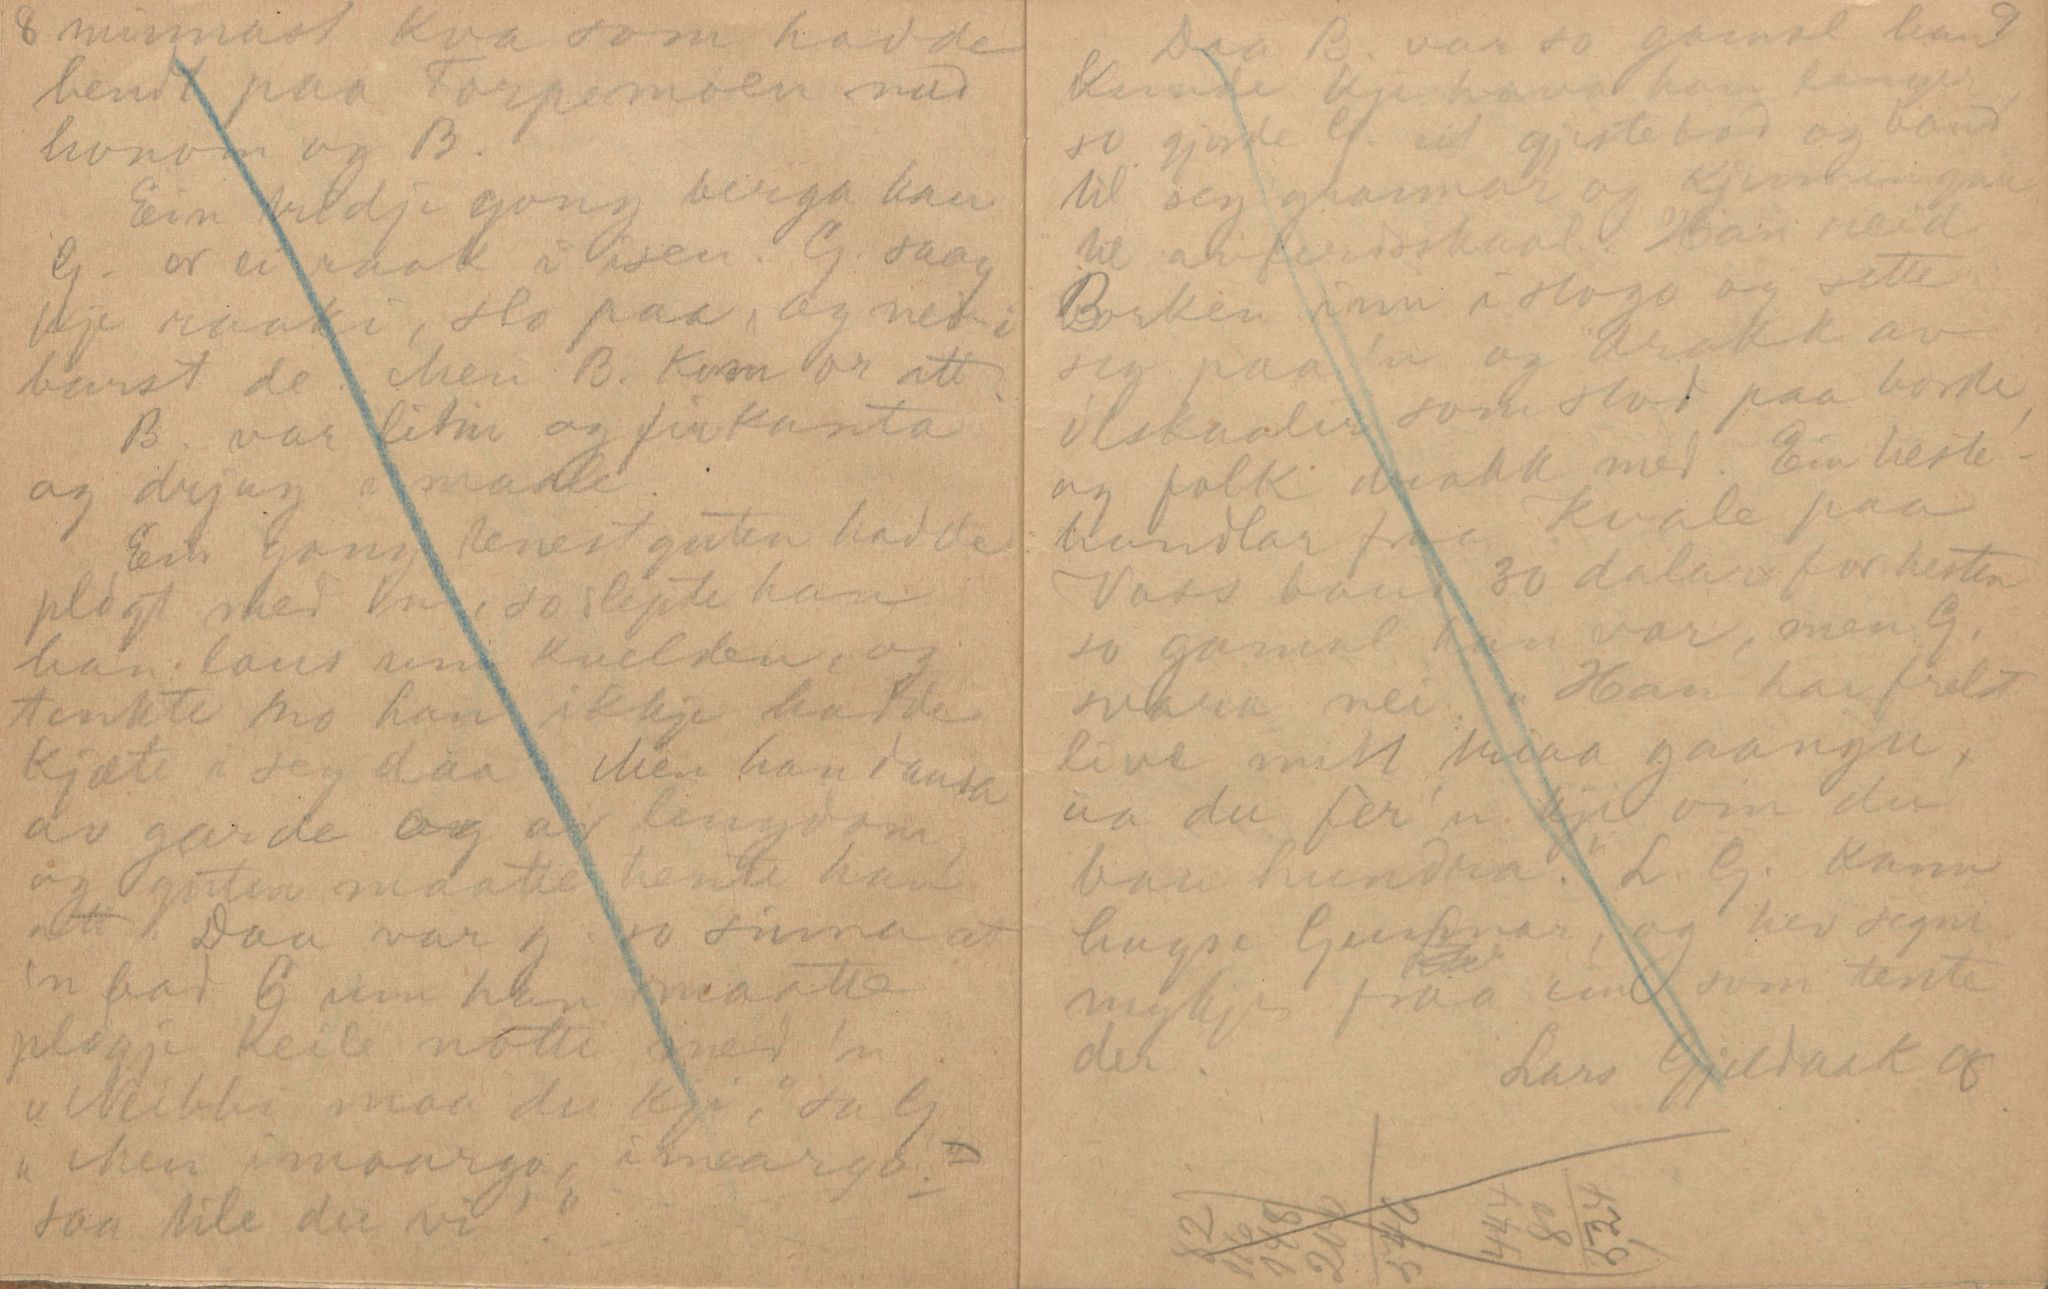 8 minnast kva som hadde
hendt paa Torpemoen med
honom og B.
Ein tredje gong berga han
G. or ei raak i isen. G. saag
kje raaki, slo paa, og ned i
barst de. Men B. kom or att.
B. var liten og firkanta
og drjug i maale.
Ein gong tenestguten hadde
pløgt med 'n, so slepte han
han laus um kvelden, og
tenkte no han ikkje hadde
kjæte i seg daa. Men han dansa
av garde og av lengdom,
og guten maatte hente han
att. Daa var g. so sinna at
'n bad G um han maatte
pløgje heile notti med 'n
"Neibbi maa du kji," sa G
"Men i maargo, i maargo
saa tile du vi'."
9
Daa B. var so gamal han
kunde kje hava han lenger,
so gjorde G. eit gjestebod og baud
til seg grannar og kjenningar
til avferdsskaal. Han reid
Borken inn i stogo og sette
seg paa 'n og drakk av
ølskaalir som stod paa borde,
og folk drakk med. Ein heste-
handlar fraa Kvale paa
Voss baud 30 dalar for hesten
so gamal han var, men G.
svara nei. "Han har frelst
live mitt treaa gaangu,
aa du fer 'n kji om du
bau hundra." L. G. kann
hugse Gunnar, og hev segni
mykje fraa ein som tente
der.
Lars Gjeldaak og
52
116
198
206
546
444
80
524